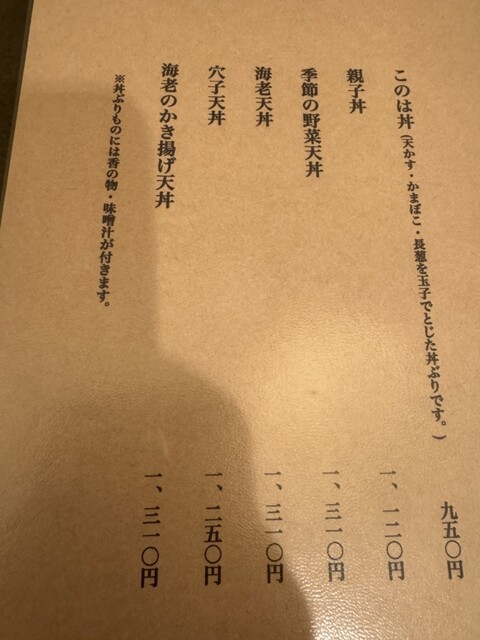 このは丼（天かす・かまぼこ・長葱を玉子でとじた丼ぶりです。） 九五〇円
親子丼 一、一二〇円
季節の野菜天丼 一、三一〇円
海老天丼 一、三一〇円
穴子天丼 一、二五〇円
海老のかき揚げ天丼 一、三一〇円
※丼ぶりものには香の物・味噌汁が付きます。